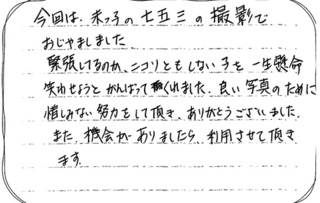 今回は、末っ子の七五三の撮影で
おじゃましました
緊張してるのか、ニコリともしない子を一生懸命
笑わせようとがんばってくれました。良い写真のために
惜しみない努力をして頂き、ありがとうございました。
また、機会がありましたら、利用させて頂き
ます。